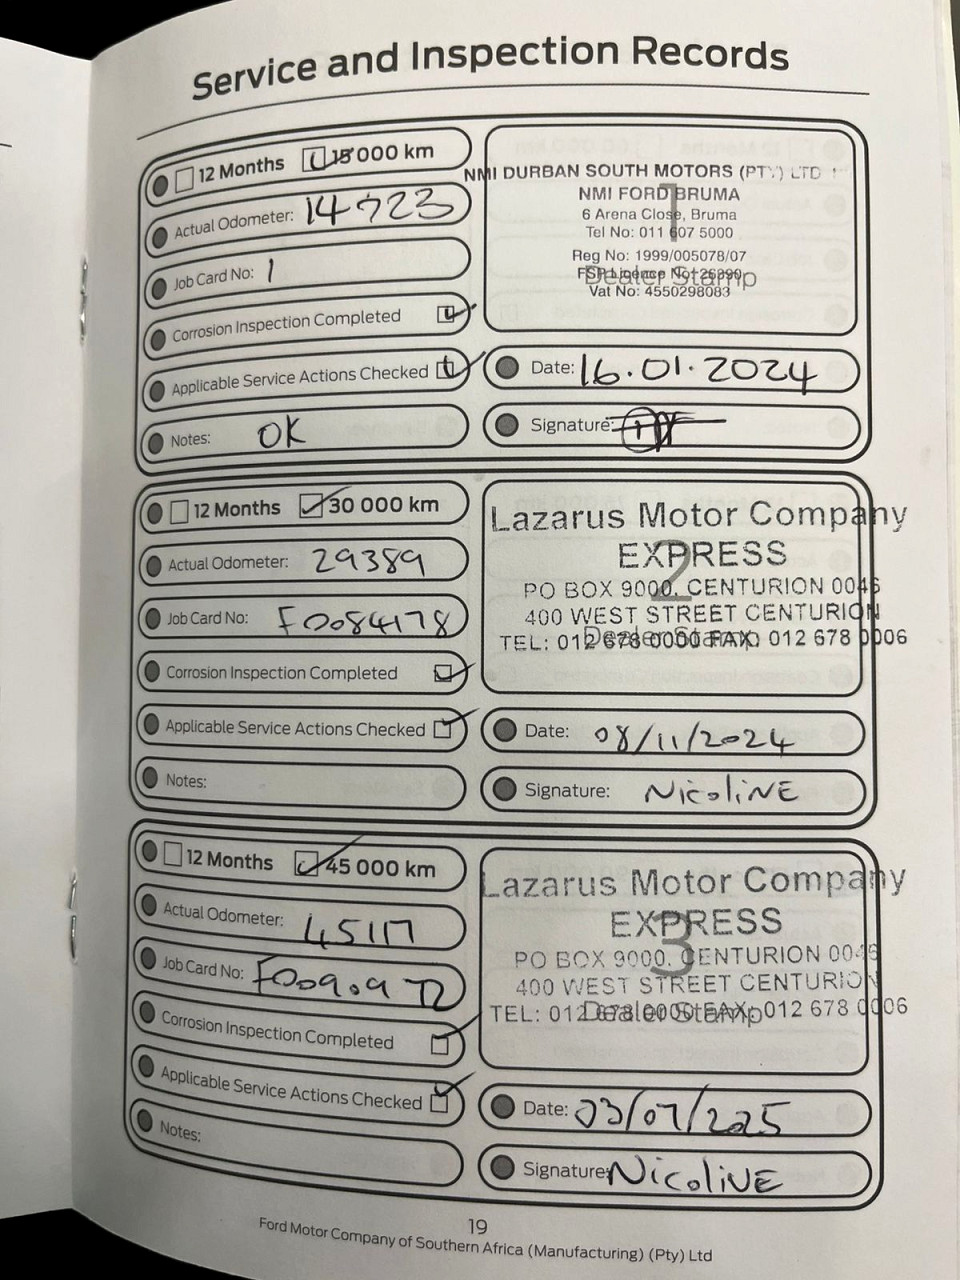 Service and Inspection Records
12 Months 15 000 km
Actual Odometer: 14723
Job Card No: 1
Corrosion Inspection Completed
Applicable Service Actions Checked
Notes: OK
NMI DURBAN SOUTH MOTORS (PTY) LTD
NMI FORD BRUMA
6 Arena Close, Bruma
Tel No: 011 607 5000
Reg No: 1999/005078/07
FSP Licence No: 26390
Vat No: 4550298083
1
Dealer Stamp
Date: 16.01.2024
Signature:
12 Months 30 000 km
Actual Odometer: 29389
Job Card No: F0084178
Corrosion Inspection Completed
Applicable Service Actions Checked
Notes:
Lazarus Motor Company
EXPRESS
PO BOX 9000, CENTURION 0046
400 WEST STREET CENTURION
TEL: 012 678 0000 FAX: 012 678 0006
2
Dealer Stamp
Date: 08/11/2024
Signature: NicoliNE
12 Months 45 000 km
Actual Odometer: 45117
Job Card No: F0090972
Corrosion Inspection Completed
Applicable Service Actions Checked
Notes:
Lazarus Motor Company
EXPRESS
PO BOX 9000, CENTURION 0046
400 WEST STREET CENTURION
TEL: 012 678 0000 FAX: 012 678 0006
3
Dealer Stamp
Date: 03/07/2025
Signature: NicoliNE
19
Ford Motor Company of Southern Africa (Manufacturing) (Pty) Ltd